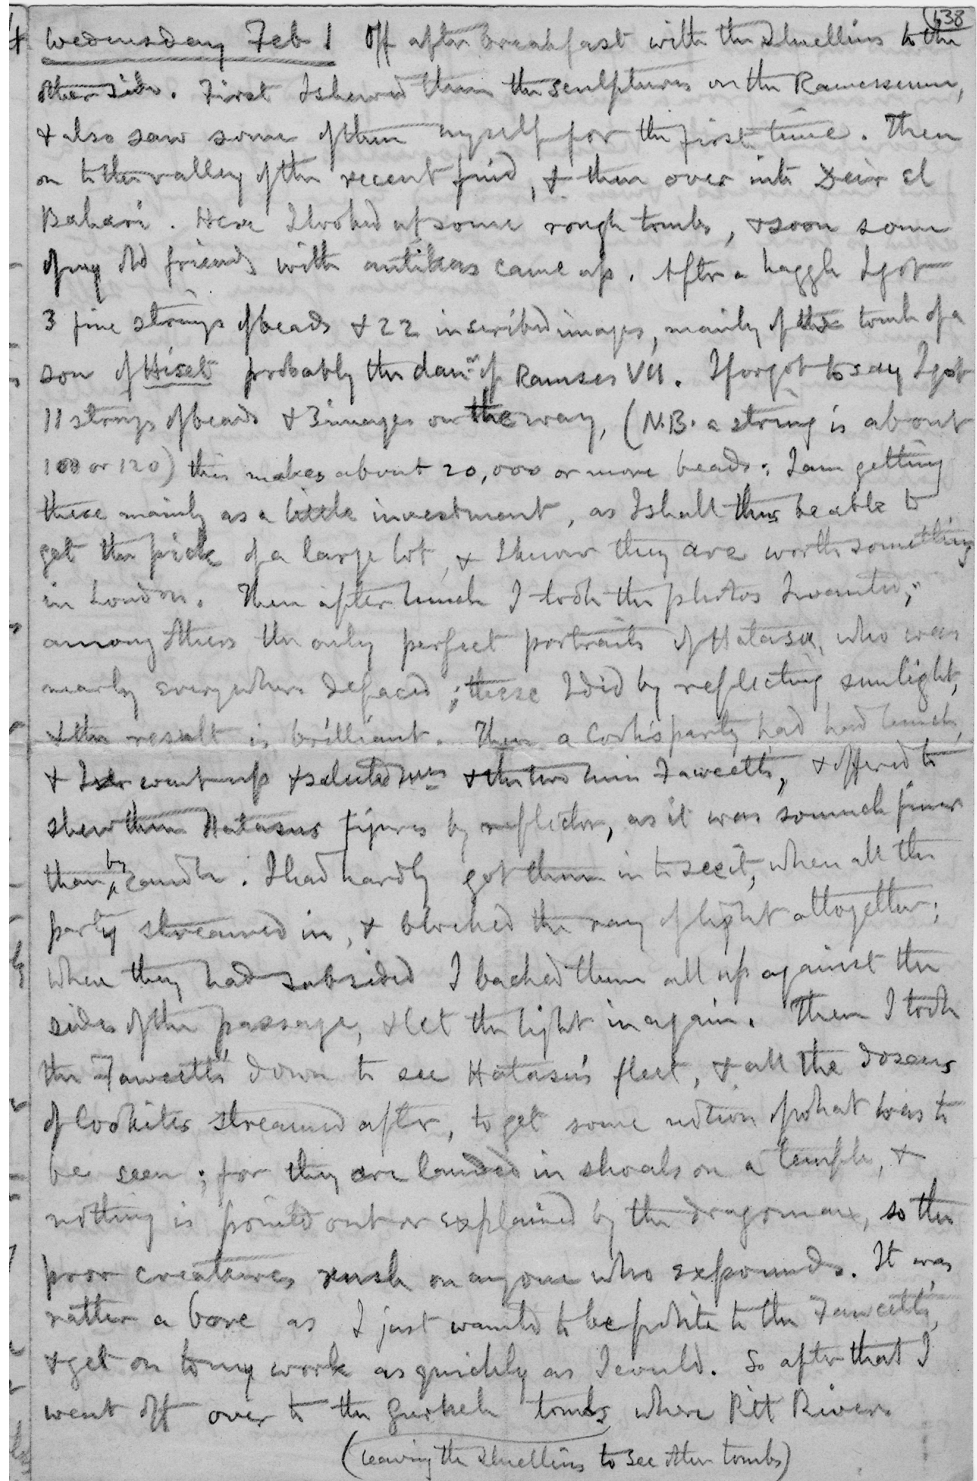 138
Wednesday Feb 1 Off after breakfast with the Dwellins to the
other side. First I shewed them the sculptures on the Ramesseum,
& also saw some of them myself for the first time. Then
on to the valley of the recent find, & then over into Deir el
Bahari. Here I looked at some rough tombs, & soon some
of my old friends with antikas came up. After a haggle I got
3 fine strings of beads & 22 inscribed images, mainly of the tomb of a
son of Hiset probably the daur of Ramses VII. I forgot to say I got
11 strings of beads & 3 images on the way, (N.B. a string is about
100 or 120) this makes about 20,000 or more beads: I am getting
these mainly as a little investment, as I shall thus be able to
get the pick of a large lot, & I know they are worth something
in London. Then after lunch I took the photos I wanted;
among others the only perfect portraits of Hatasu, who was
nearly everywhere defaced; these I did by reflecting sunlight,
& the result is brilliant. Then a Cook's party had had lunch,
& I went up & saluted Mrs & the two Miss Fawcetts, & offered to
shew them Hatasus figures by reflector, as it was so much finer
than by candle. I had hardly got them in to see it, when all the
party streamed in, & blocked the ray of light altogether;
when they had subsided I backed them all up against the
sides of the passage, & let the light in again. Then I took
the Fawcetts down to see Hatasu's fleet, & all the dozens
of Cookites streamed after, to get some notion of what was to
be seen; for they are landed in shoals on a temple, &
nothing is pointed out or explained by the dragoman, so the
poor creatures rush on anyone who expounds. It was
rather a bore as I just wanted to be polite to the Fawcetts,
& get on to my work as quickly as I could. So after that I
went off over to the Gurneh tombs where Pitt Rivers
(leaving the Dwellins to see other tombs)